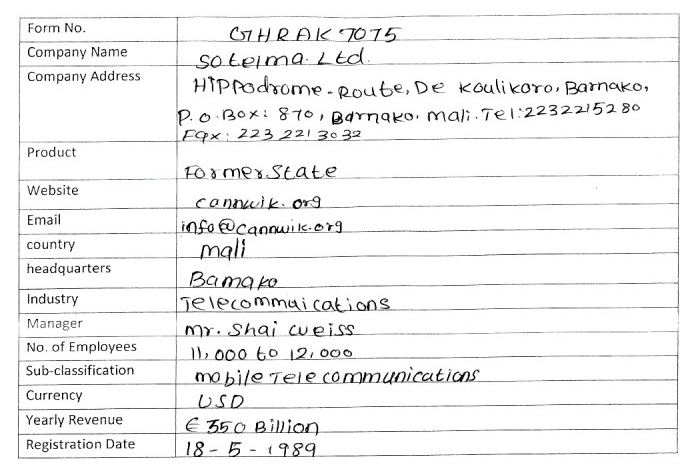 Form No. GHRAK 7075
Company Name Sotelma. Ltd.
Company Address HiPPodrome - Route, De Koulikoro, Bamako,
P.O.Box: 870, Bamako. Mali. Tel:2232215280
Fax: 223 221 3032
Product Former.State
Website cannwik.org
Email info@cannwik.org
country Mali
headquarters Bamako
Industry Telecommuications
Manager Mr. Shai weiss
No. of Employees 11,000 to 12,000
Sub-classification mobile Telecommunications
Currency USD
Yearly Revenue € 350 Billion
Registration Date 18-5-1989